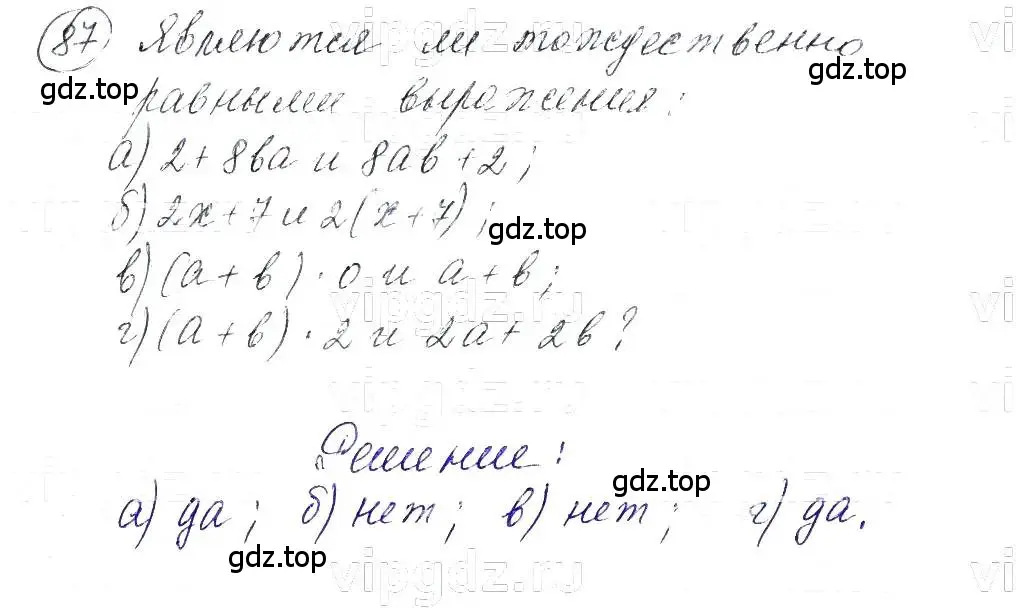 87) Являются ли тождественно
gdz.top
gdz.top
равными выражения:
а) 2 + 8ва и 8ав + 2;
б) 2х + 7 и 2(х + 7);
gdz.top
в) (а + в) · 0 и а + в;
г) (а + в) · 2 и 2а + 2в?
Решение:
gdz.top
а) да; б) нет; в) нет; г) да.
gdz.top
vipgdz.ru